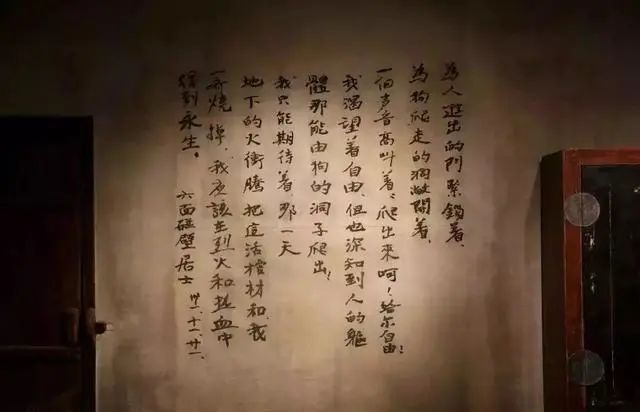 為人進出的門緊鎖着，
為狗爬走的洞敞開着，
一個声音高叫着，爬出來呵！給尔自由！
我渴望着自由，但也深知到人的軀
體那能由狗的洞子爬出！
我只能期待着，那一天
地下的火衝騰，把這活棺材和我
一齊燒掉，我应該在烈火和热血中
得到永生。
六面碰壁居士
卅一.十一.廿一.